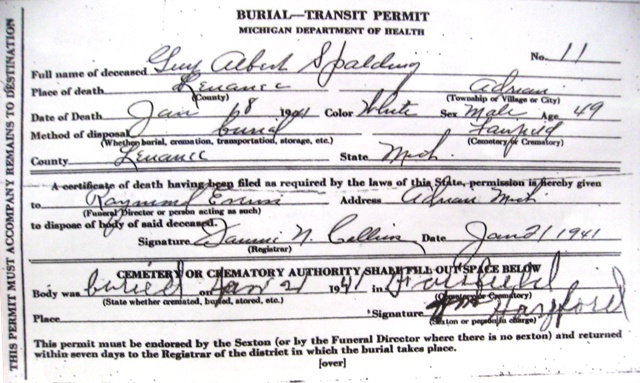 BURIAL—TRANSIT PERMIT
MICHIGAN DEPARTMENT OF HEALTH
No. 11
Full name of deceased Guy Albert Spalding
Place of death Lenawee Adrian
(County) (Township or Village or City)
Date of Death Jan 1941 Color White Sex Male Age 49
Method of disposal burial Fairfield
(Whether burial, cremation, transportation, storage, etc.) (Cemetery or Crematory)
County Lenawee State Mich.
A certificate of death having been filed as required by the laws of this State, permission is hereby given
to Raymond Address Adrian Mich
(Funeral Director or person acting as such)
to dispose of body of said deceased.
Signature N. Collins Date Jan 21 1941
(Registrar)
CEMETERY OR CREMATORY AUTHORITY SHALL FILL OUT SPACE BELOW
Body was buried on Jan 21 1941 in Fairfield
(State whether cremated, buried, stored, etc.) (Cemetery or Crematory)
Place Signature Wm Hayford
(Sexton or person in charge)
This permit must be endorsed by the Sexton (or by the Funeral Director where there is no sexton) and returned
within seven days to the Registrar of the district in which the burial takes place.
[over]
THIS PERMIT MUST ACCOMPANY REMAINS TO DESTINATION